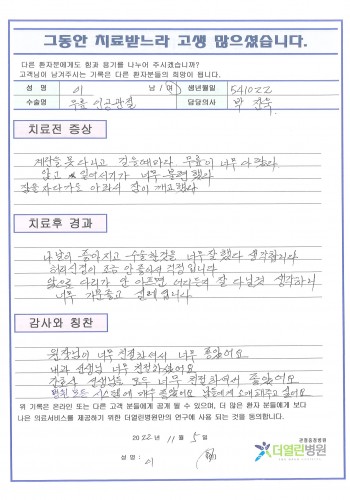 그동안 치료받느라 고생 많으셨습니다.
다른 환자분에게도 힘과 용기를 나누어 주시겠습니까?
고객님이 남겨주시는 기록은 다른 환자분들의 희망이 됩니다.
성 명 이 남 / 여 생년월일 541022
수술명 무릎 인공관절 담당의사 박
치료전 증상
계단을 못 다니고 걸을때마다 무릎이 너무 아팠다.
앉고 일어서기가 너무 불편했다
잠을 자다가도 아파서 잠이 깨고했다
치료후 경과
나날이 좋아지고 수술한것을 너무 잘했다 생각합니다
허리신경이 조금 안 좋아서 걱정입니다
앞으로 다리가 안 아프면 어디든지 잘 다닐것 생각하니
너무 기분좋고 설레입니다
감사와 칭찬
원장님이 너무 친절하셔서 너무 좋았어요
내과 선생님 너무 친절하셨어요
간호사 선생님들 모두 너무 친절하셔서 좋았어요
병원 모든 시스템에 매우 좋았어요 남들에게 소개해주고 싶어요
위 기록은 온라인 또는 다른 고객 분들에게 공개 될 수 있으며, 더 많은 환자 분들에게 보다
나은 의료서비스를 제공하기 위한 더열린병원만의 연구에 사용 되는 것을 동의합니다.
2022년 11월 5일
성 명 : 이
더열린병원